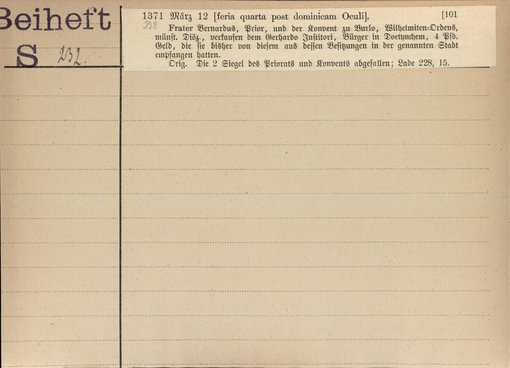 Beiheft
S 232
1371 März 12 [feria quarta post dominicam Oculi]. [101
232
Frater Bernardus, Prior, und der Konvent zu Burlo, Wilhelmiten-Ordens,
münst. Diöz., verkaufen dem Gerhardo Institori, Bürger in Doetynchem, 4 Pfd.
Geld, die sie bisher von diesem aus dessen Besitzungen in der genannten Stadt
empfangen hatten.
Orig. Die 2 Siegel des Priorats und Konvents abgefallen; Lade 228, 15.